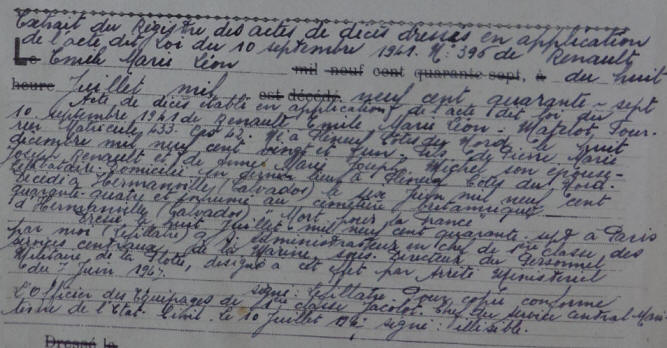 Extrait du Registre des actes de décès dressés en application
de l'acte dit Loi du 10 septembre 1941. N: 396 de Renault
Le Emile Marie Léon mil neuf cent quarante sept, à du huit
heure Juillet mil est décédé neuf cent quarante-sept
Acte de décès établi en application de l'acte dit loi du
10 septembre 1941 de Renault Emile Marie Léon - Matelot Four-
rier Matricule 433. 42. Né à Côtes du Nord le huit
décembre mil neuf cent vingt et un. fils de Pierre Marie
Joseph Renault et de Marie Michel son épouse-
Célibataire. domicilié en dernier lieu à Côtes du Nord.
décédé à Hermanville (Calvados) le six juin mil neuf cent
quarante-quatre et inhumé au cimetière britannique
d'Hermanville (Calvados) "Mort pour la France"
Dressé huit Juillet mil neuf cent quarante-sept à Paris
par moi administrateur en chef de 1ère classe des
services centraux de la Marine sous-directeur du Personnel
Militaire de la Flotte, désigné à cet effet par arrêté ministériel
du Juin 1947.
signé: Pour copie conforme
L'Officier des Equipages de 1ère classe Jacolot. Chef du service central Mari-
time de l'Etat-Civil. le 10 Juillet signé: illisible.
Dressé le